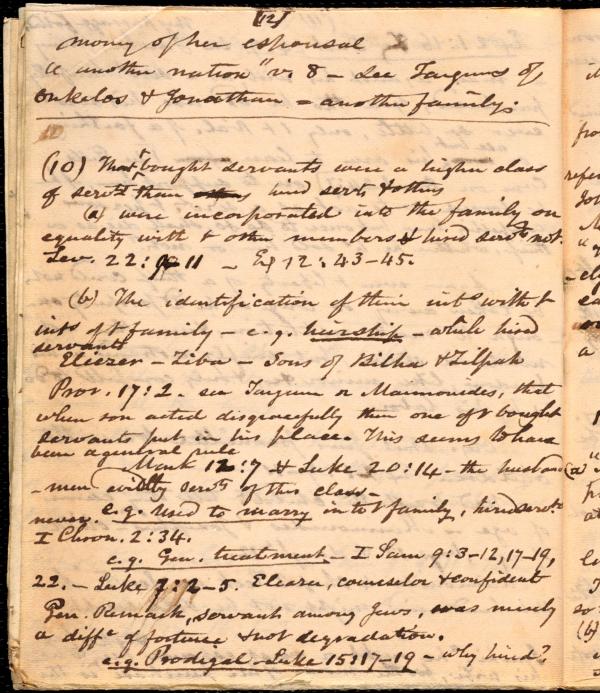 [12]
mony of her espousal
"a another nation" v. 8 - See Targums of
Onkelos & Jonathan = another family.
(10) That bought servants were a higher class
of servts than hired servts & others
(a) were incorporated into the family on
equality with t other members & hired servts not.
Lev. 22: 11 - Ex 12: 43-45.
(b) The identification of their ints with t
ints of t family - e.g. heirship - while hired
servants
Eliezer - Ziba - Sons of Bilha & Zilpah
Prov. 17:2. see Targum or Maimonides, that
when son acted disgracefully then one of t bought
servants put in his place. This seems to have
been a general rule
Mark 12:7 & Luke 20:14 - the husband
-men evidtly servts of this class -
e.g. used to marry into t family, hired servts
never.
I Chron. 2:34.
e.g. Gen. treatment - I Sam 9:3-12, 17-19,
22. - Luke 7:2-5. Eliezer, counselor & confident
Gen. Remark, servants among Jews, was merely
a diffce of fortune & not degradation.
e.g. Prodigal - Luke 15:17-19 - why hired?